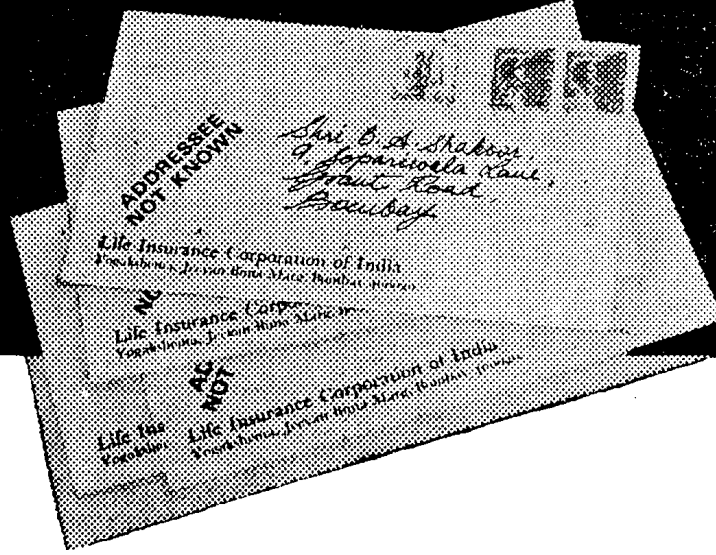 ADDRESSEE
NOT KNOWN
Shri B. A. Shakoor,
9, Soparivala Lane,
Grant Road,
Bombay
Life Insurance Corporation of India
Yogakshema, Jeevan Bima Marg, Bombay
Life Insurance Corpor
Yogakshema, Jeevan Bima Marg,
AD
NOT
Life Insurance Corporation of India
Yogakshema, Jeevan Bima Marg, Bombay
Life Ins
Yogakshem